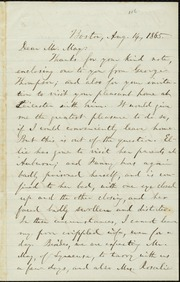 Boston, Aug. 14, 1865.
Dear Mr. May:
Thanks for your kind note,
enclosing one to you from George
Thompson, and also for your invita-
tion to visit your pleasant home at
Leicester with him. It would give
me the greatest pleasure to do so,
if I could conveniently leave home.
But this is out of the question.
lie has gone to visit her friend at
Auburn; and Fanny has again
badly poisoned herself, and is con-
fined to her bed, with one eye closed
up and the other closing, and her
face badly swollen and blistered.
In these circumstances, I cannot leave
my poor crippled wife, even for a
day. Besides, we are expecting Mr.
May, of Syracuse, to tarry with us
a few days, and also Mrs.